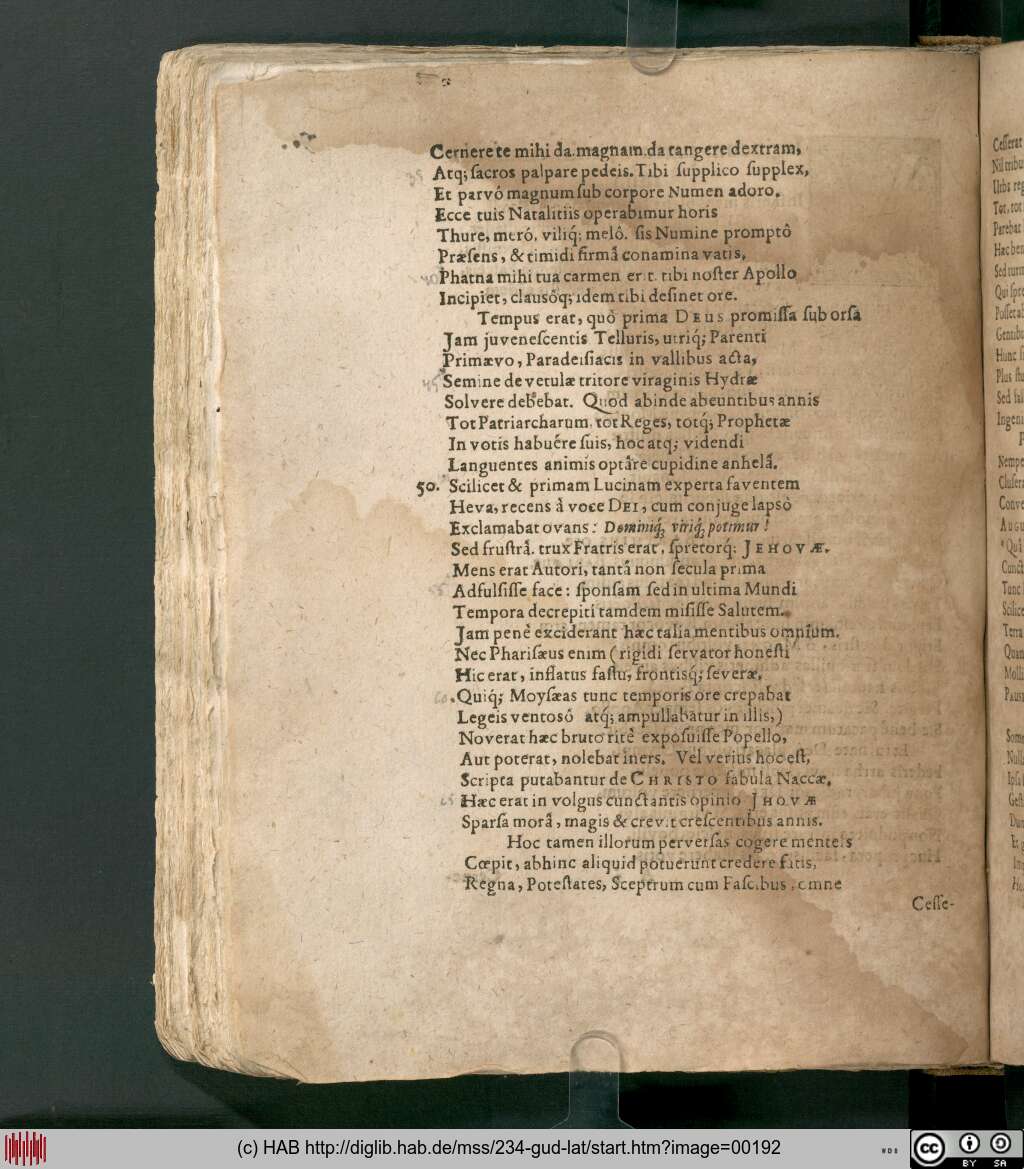 Cernere te mihi da, magnam da tangere dextram,
Atq; sacros palpare pedeis. Tibi supplico supplex,
Et parvô magnum sub corpore Numen adoro.
Ecce tuis Natalitiis operabimur horis
Thure, merô, viliq́; melô. sis Numine promptô
Præsens, & timidi firmâ conamina vatis,
Phatna mihi tua carmen erit. tibi noster Apollo
Incipiet, clausôq; idem tibi desinet ore.
Tempus erat, quô prima DEUS promissa sub orsa
Jam juvenescentis Telluris, utriq́; Parenti
Primævo, Paradeisiacis in vallibus acta,
45
Semine de vetulæ tritore viraginis Hydræ
Solvere debebat. Quod abinde abeuntibus annis
Tot Patriarcharum, tot Reges, totq́; Prophetæ
In votis habuêre suis, hoc atq; videndi
Languentes animis optâre cupidine anhelâ.
50. Scilicet & primam Lucinam experta faventem
Heva, recens â voce DEI, cum conjuge lapsô
Exclamabat ovans: Dominiq́; viriq́; potimur!
Sed frustrâ. trux Fratris erat, spretorq́; JEHOVÆ.
Mens erat Autori, tantâ non secula prima
Adfulsisse face: sponsam sed in ultima Mundi
Tempora decrepiti tamdem misisse Salutem.
Jam penè exciderant hæc talia mentibus omnium.
Nec Pharisæus enim (rigidi servator honesti
Hic erat, inflatus fastu, frontisq́; severæ,
60. Quiq́; Moysæas tunc temporis ore crepabat
Legeis ventosô atq́; ampullabatur in illis,)
Noverat hæc bruto ritè exposuisse Popello,
Aut poterat, nolebat iners. Vel verius hoc est,
Scripta putabantur de CHRISTO fabula Naccæ.
65
Hæc erat in volgus cunctantis opinio JHOVÆ
Sparsa morâ, magis & crevit crescentibus annis.
Hoc tamen illorum perversas cogere menteis
Cœpit, abhinc aliquid potuerunt credere fatis,
Regna, Potestates, Sceptrum cum Fascibus omne
Cesse-
(c) HAB http://diglib.hab.de/mss/234-gud-lat/start.htm?image=00192
cc BY SA